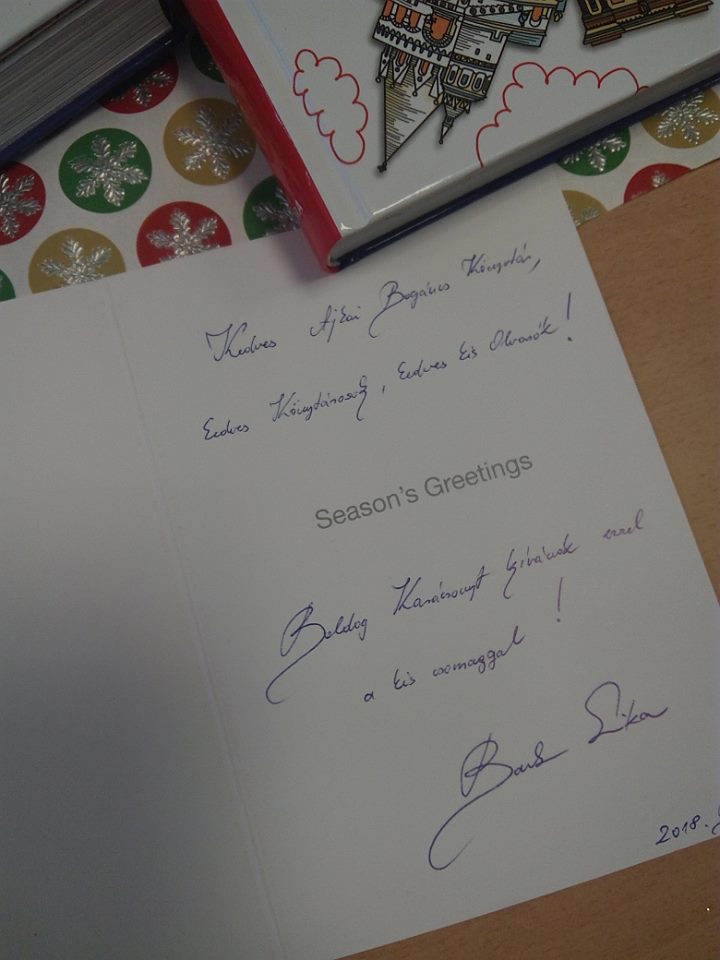 Kedves Ajkai Bogáncs Könyvtár,
kedves Könyvtárosok, kedves kis Olvasók!
Season's Greetings
Boldog Karácsonyt kívánok ezzel
a kis csomaggal!
2018.